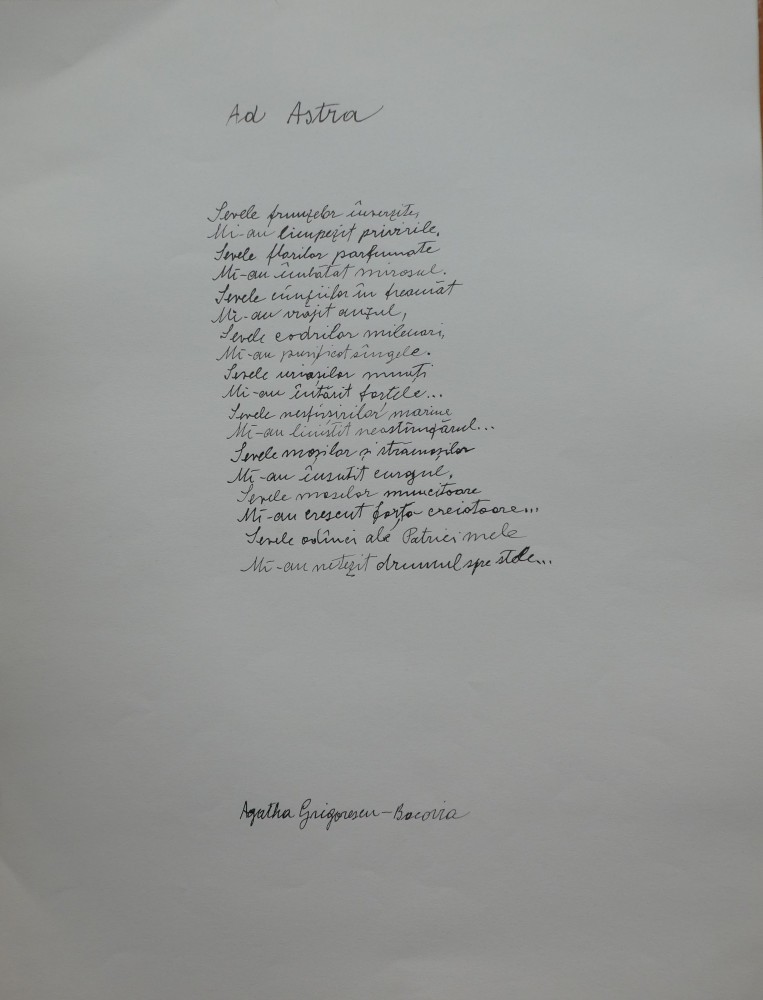 Ad Astra
Sevele frunzelor înverzite,
Mi-au limpezit privirile.
Sevele florilor parfumate
Mi-au îmbătat mirosul.
Sevele cîmpiilor în freamăt
Mi-au vrăjit auzul,
Sevele codrilor milenari,
Mi-au purificat sîngele.
Sevele uriașilor munți
Mi-au întărit forțele...
Sevele nesfîrșirilor marine
Mi-au liniștit neastîmpărul...
Sevele moșilor și strămoșilor
Mi-au însutit curajul.
Sevele maselor muncitoare
Mi-au crescut forța creiatoare...
Sevele adînci ale Patriei mele
Mi-au netezit drumul spre stele...
Agatha Grigorescu-Bacovia